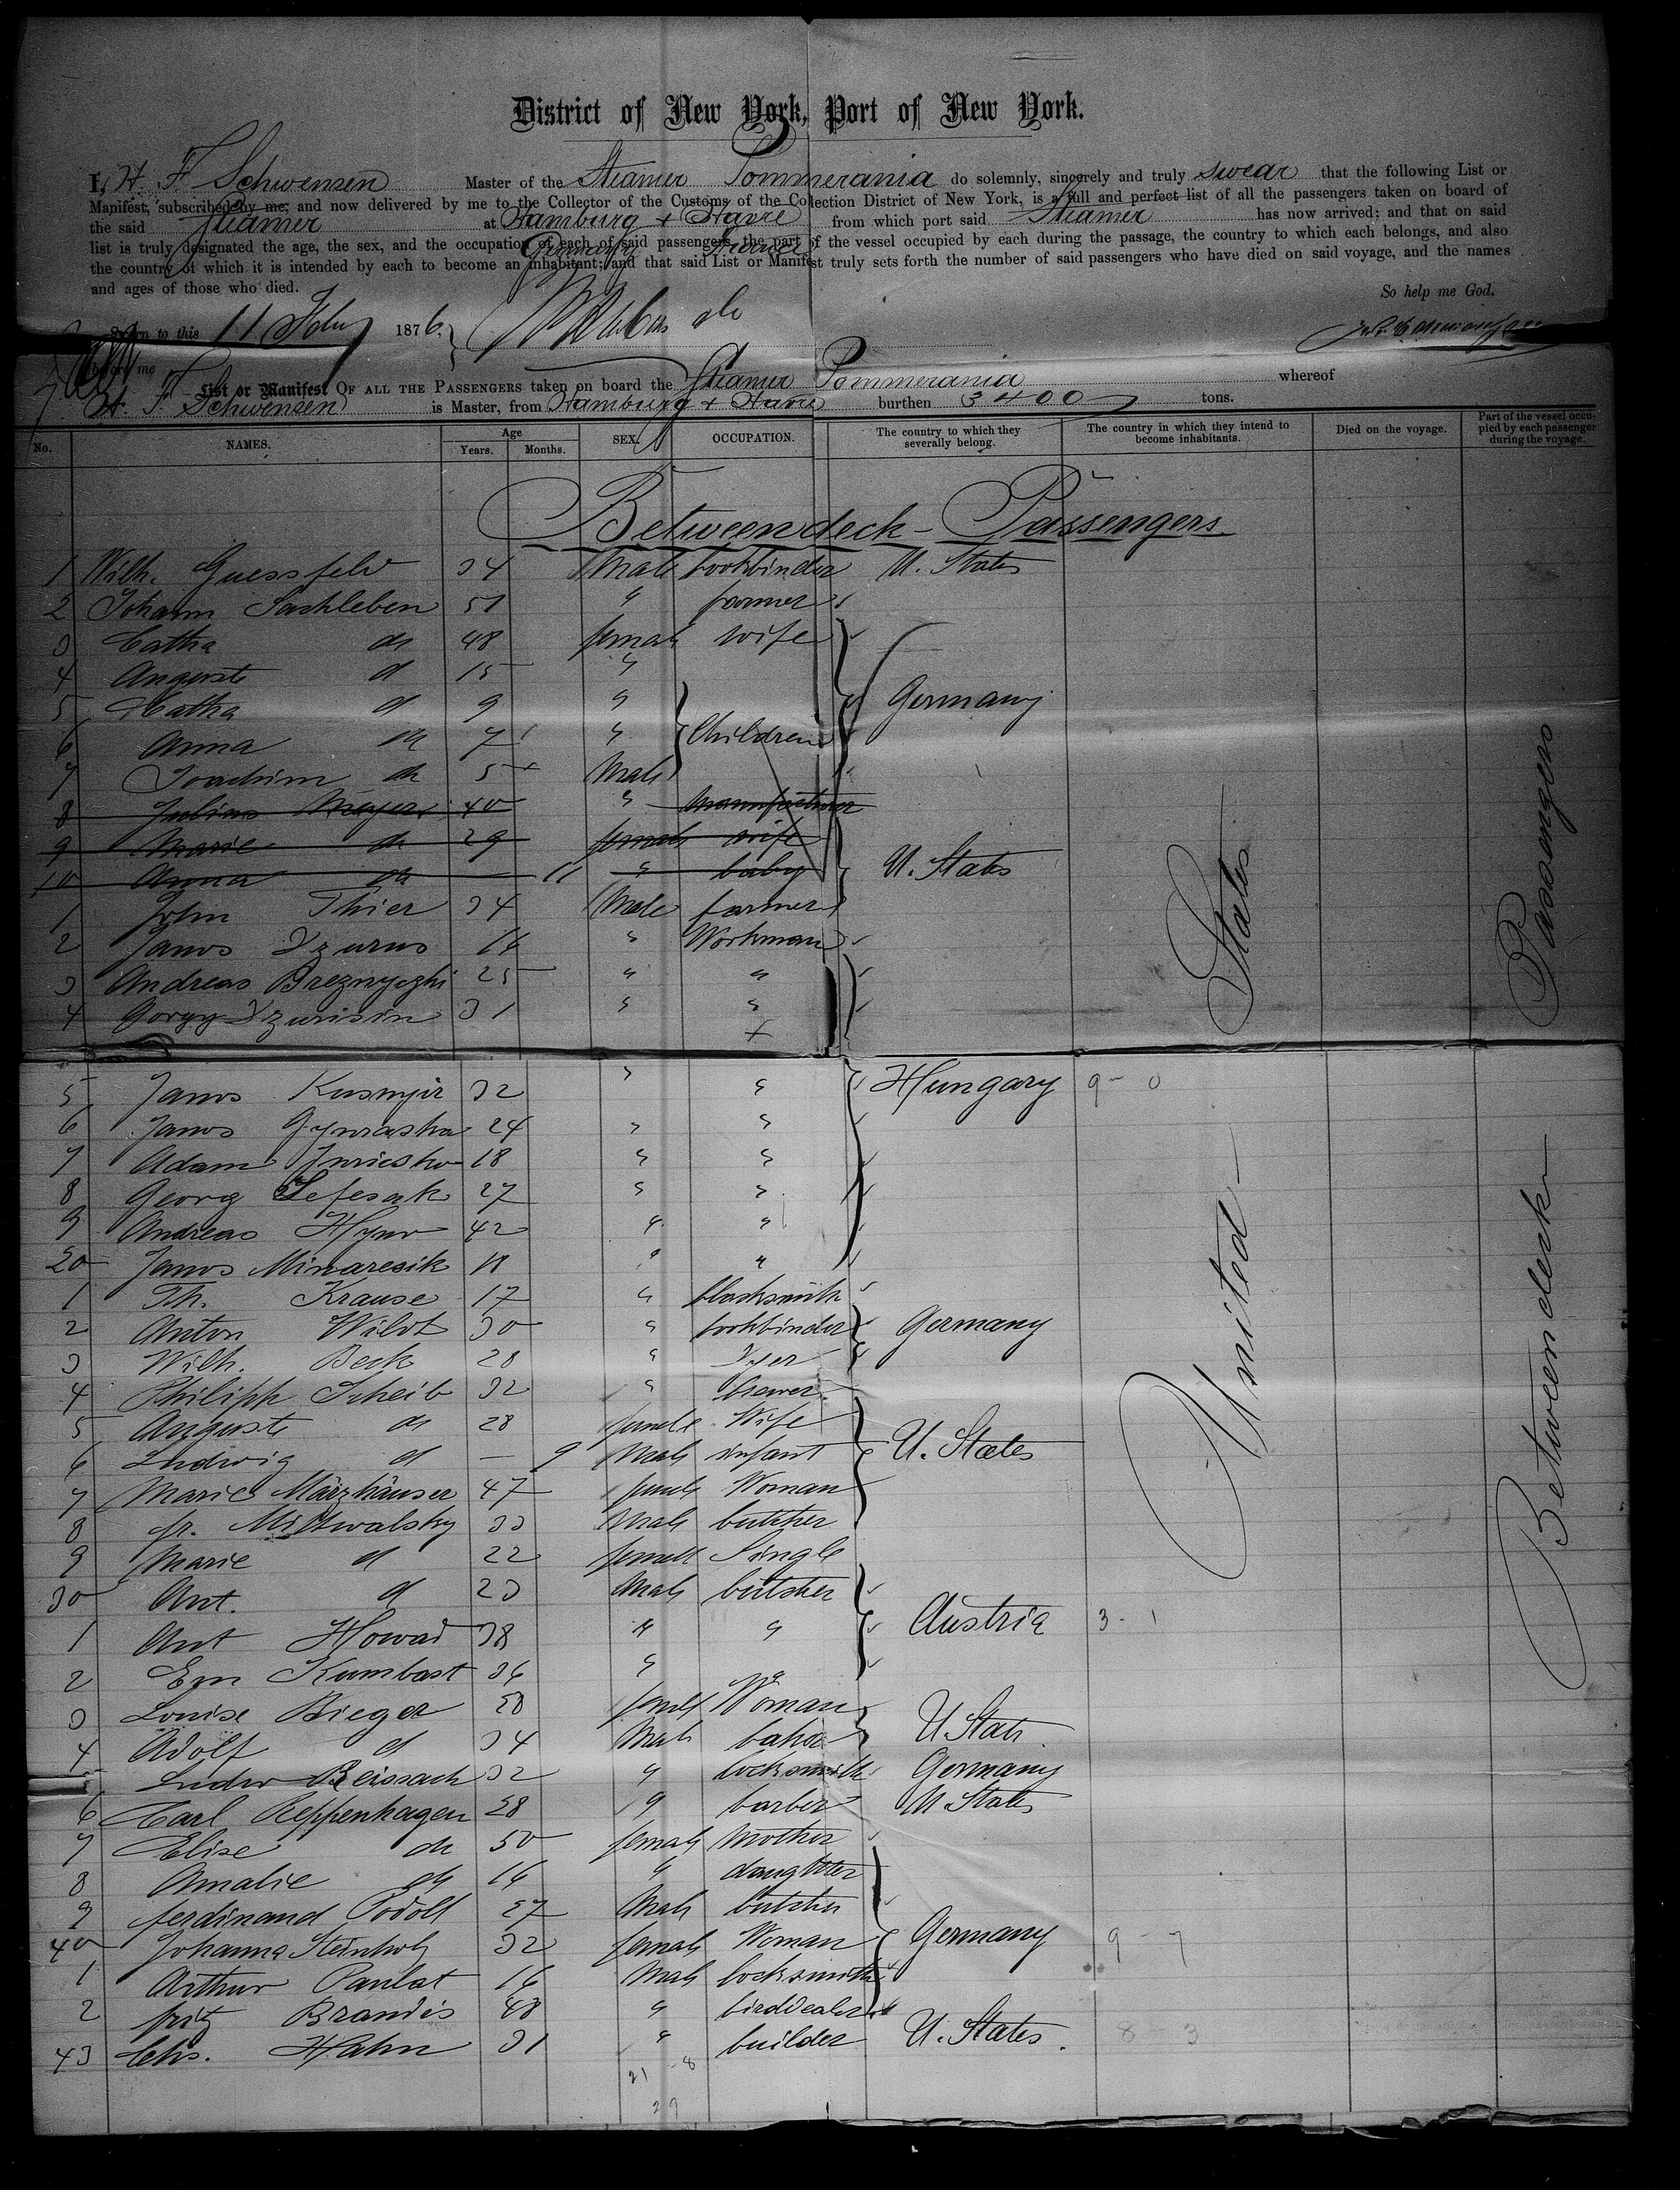 District of New York, Port of New York.
I, H. F. Schwensen Master of the Steamer Pommerania do solemnly, sincerely and truly swear that the following List or
Manifest, subscribed by me, and now delivered by me to the Collector of the Customs of the Collection District of New York, is a full and perfect list of all the passengers taken on board of
the said Steamer at Hamburg + Havre from which port said Steamer has now arrived; and that on said
Germany France
list is truly designated the age, the sex, and the occupation of each of said passengers, the part of the vessel occupied by each during the passage, the country to which each belongs, and also
the country of which it is intended by each to become an inhabitant; and that said List or Manifest truly sets forth the number of said passengers who have died on said voyage, and the names
and ages of those who died.
So help me God.
Sworn to this 11 1876.
before me
List or Manifest OF ALL THE PASSENGERS taken on board the Steamer Pommerania whereof
H. F. Schwensen is Master, from Hamburg + Havre burthen 3400 tons.
No. NAMES. Age Years. Months. SEX. OCCUPATION. The country to which they severally belong. The country in which they intend to become inhabitants. Died on the voyage. Part of the vessel occupied by each passenger during the voyage.
Betweendeck-Passengers
1 Wilh. Guessfeld 34 Male bookbinder U. States
2 Johann Sachleben 51 " farmer
3 Catha do 48 female wife
4 Auguste do 15 "
5 Catha do 9 " Germany
6 Anna do 7 " Children
7 Joachim do 5 Male
8 Julius Meyer 40 " Manufacturer
9 Marie do 29 female wife
10 Anna do 11 " baby U. States
1 John Thier 34 Male farmer
2 Janos Dzurus 16 " Workman
3 Andreas Breznyczki 25 " "
4 Dzurisin 31 " "
5 Janos Kusmyir 32 " " Hungary 9-0
6 Janos 24 " "
7 Adam 18 " "
8 Georg Lefesak 27 " "
9 Andreas 42 " "
20 Janos Minaresik 18 " "
1 Th. Krause 17 " blacksmith
2 Anton Wildt 30 " bookbinder Germany
3 Wilh. Beck 28 " Dyer
4 Philipp Scheib 32 " brewer
5 Auguste do 28 female Wife
6 Ludwig do — 9 Male infant U. States
7 Marie Märzhäuser 47 female Woman
8 fr. 33 Male butcher
9 Marie do 22 female Single
30 Ant. do 23 Male butcher
1 Ant 38 " " Austria 3-1
2 Em Kumbast 36 " "
3 Louise Bieger 58 female Woman
4 Adolf do 34 Male baker U. States
5 Ludw Beissach 32 " locksmith Germany
6 Carl Reppenhagen 28 " barber U States
7 Elise do 50 female Mother
8 Amalie do 16 " daughter
9 ferdinand Podoll 27 Male butcher
40 Johanna Steinholz 32 female Woman Germany 9-7
1 Arthur Paulat 16 Male locksmith
2 fritz Brandis 48 " birddealer
43 Chs. Hahn 31 " builder U. States. 8 3
21 8
29
United States
Betweendeck Passengers